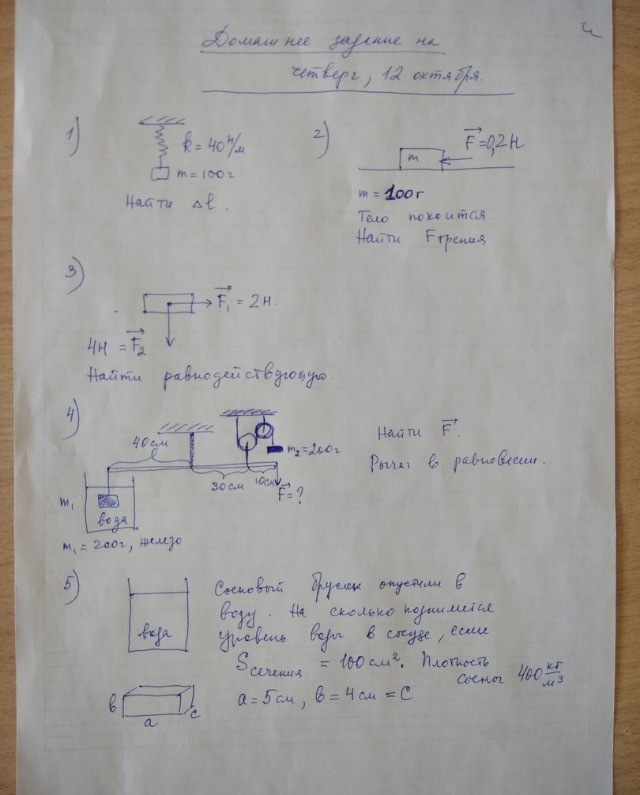 Домашнее задание на
четверг, 12 октября.
1)
k = 40 Н/м
m = 100г
Найти Δl.
2)
F = 0,2 Н
m
m = 100г
Тело покоится.
Найти Fтрения
3)
F₁ = 2Н.
4Н = F₂
Найти равнодействующую.
4)
40см
m₂ = 200г
30см
10см
F = ?
m₁
вода
m₁ = 200г, железо
Найти F.
Рычаг в равновесии.
5)
вода
Сосновый брусок опустили в
воду. На сколько поднимется
уровень воды в сосуде, если
Sсечения = 100 см². Плотность
сосны 400 кг/м3
a = 5см, b = 4см = C
b
a
c